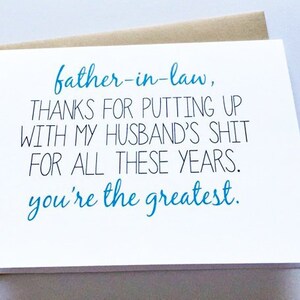 father-in-law,
THANKS FOR PUTTING UP
WITH MY HUSBAND'S SHIT
FOR ALL THESE YEARS.
you're the greatest.